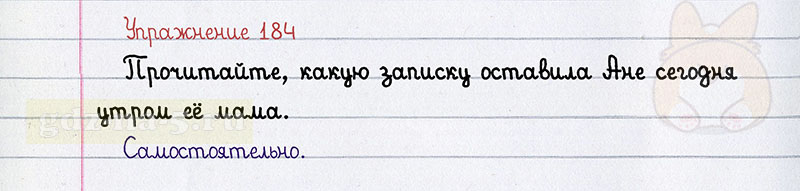 Упражнение 184
Прочитайте, какую записку оставила Ане сегодня
утром её мама.
Самостоятельно.